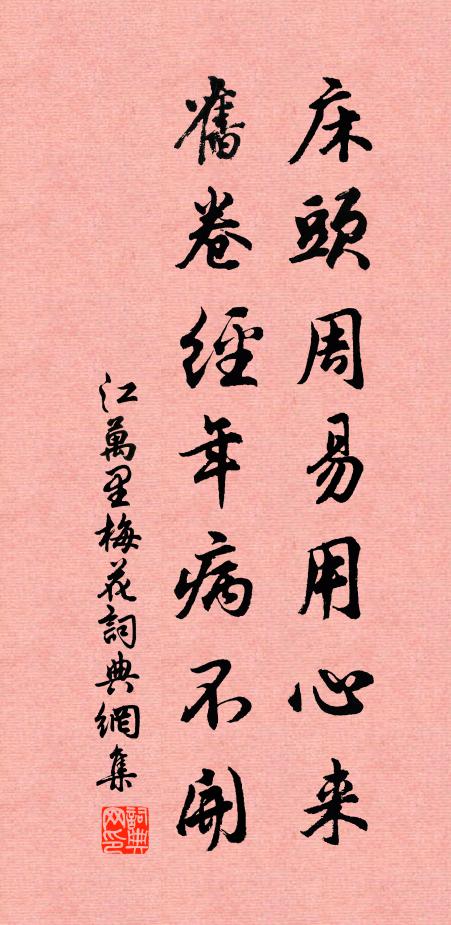 床頭周易用心来
舊卷經年病不開
江萬里梅花詞典網集
詞典网印